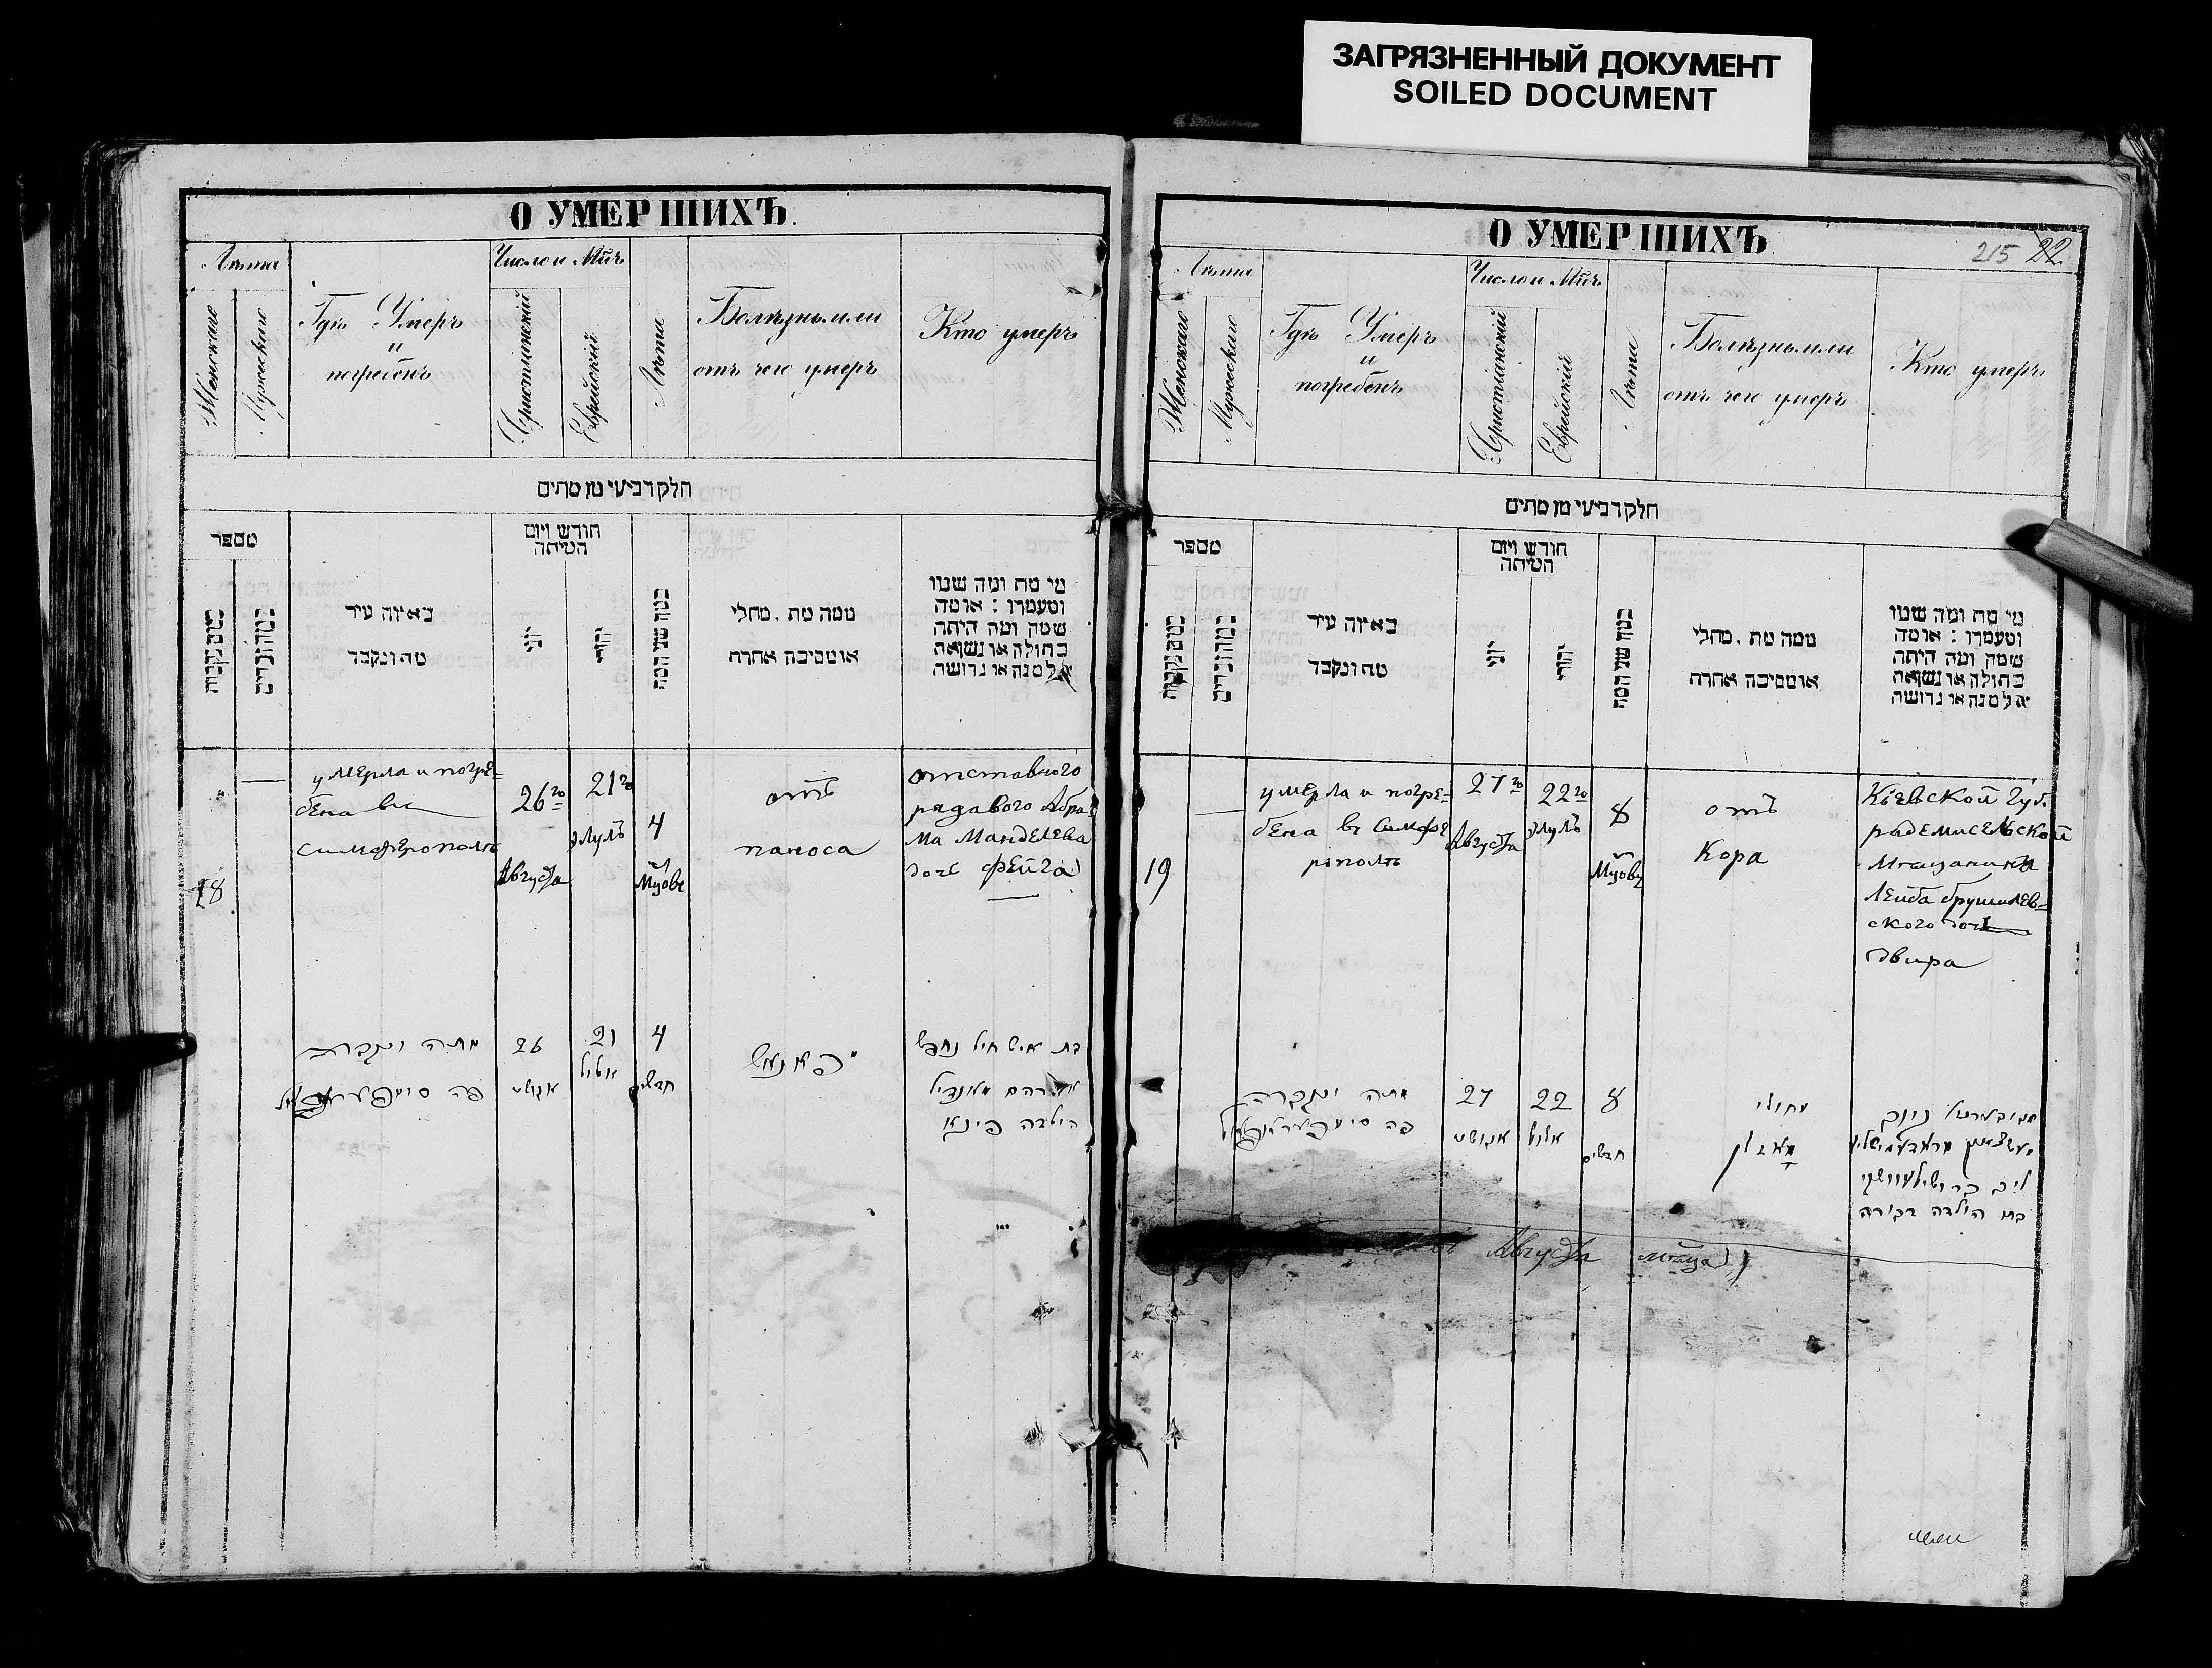 ЗАГРЯЗНЕННЫЙ ДОКУМЕНТ
SOILED DOCUMENT
О УМЕРШИХЪ.
Лѣта
Женскаго
Мужескаго
Гдѣ Умеръ
и
погребенъ
Число и Мѣ̃ъ
Христіанскій
Еврейскій
Лѣта
Болѣзнь или
отъ чего умеръ
Кто умеръ
חלק רביעי מן מתים
מספר
מספר נקבות
מהזכרים
באיזה עיר
מת ונקבר
חודש ויום
המיתה
יוני
יהודי
כמה שני המת
ממה מת . מחלי
או מסיבה אחרת
מי מת ומה שמו
ומעמדו : או מה
שמה ומה היתה
בתולה או נשואה
אלמנה או גרושה
18
—
умерла и погре=
бена въ
симферополѣ
26го
Августа
21го
Элулъ
4
мцовъ
отъ
поноса
отставного
рядового Абра
ма Манделева
дочь Фейга
מתה ונקברה
פה סימפעראפאל
26
אגוסט
21
אלול
4
חדשים
בת איש חיל
אברהם מאנדיל
הילדה פיגא
О УМЕРШИХЪ
215 22
Лѣта
Женскаго
Мужескаго
Гдѣ Умеръ
и
погребенъ
Число и Мѣ̃ъ
Христіанскій
Еврейскій
Лѣта
Болѣзнь или
отъ чего умеръ
Кто умеръ
חלק רביעי מן מתים
מספר
מספר נקבות
מהזכרים
באיזה עיר
מת ונקבר
חודש ויום
המיתה
יוני
יהודי
כמה שני המת
ממה מת . מחלי
או מסיבה אחרת
מי מת ומה שמו
ומעמדו : או מה
שמה ומה היתה
בתולה או נשואה
אלמנה או גרושה
19
—
умерла и погре=
бена въ Симфе
рополѣ
27го
Августа
22го
Элулъ
8
мцовъ
отъ
Кора
Кіевской губ.
радемисельской
мещанина
Лейба брушилев=
ского дочь
двира
מתה ונקברה
פה סימפעראפאל
27
אגוסט
22
אלול
8
חדשים
מחולי
מאזלן
ליב ברושילעווסקי
בת הילדה דבורה
Августа мѣсяца